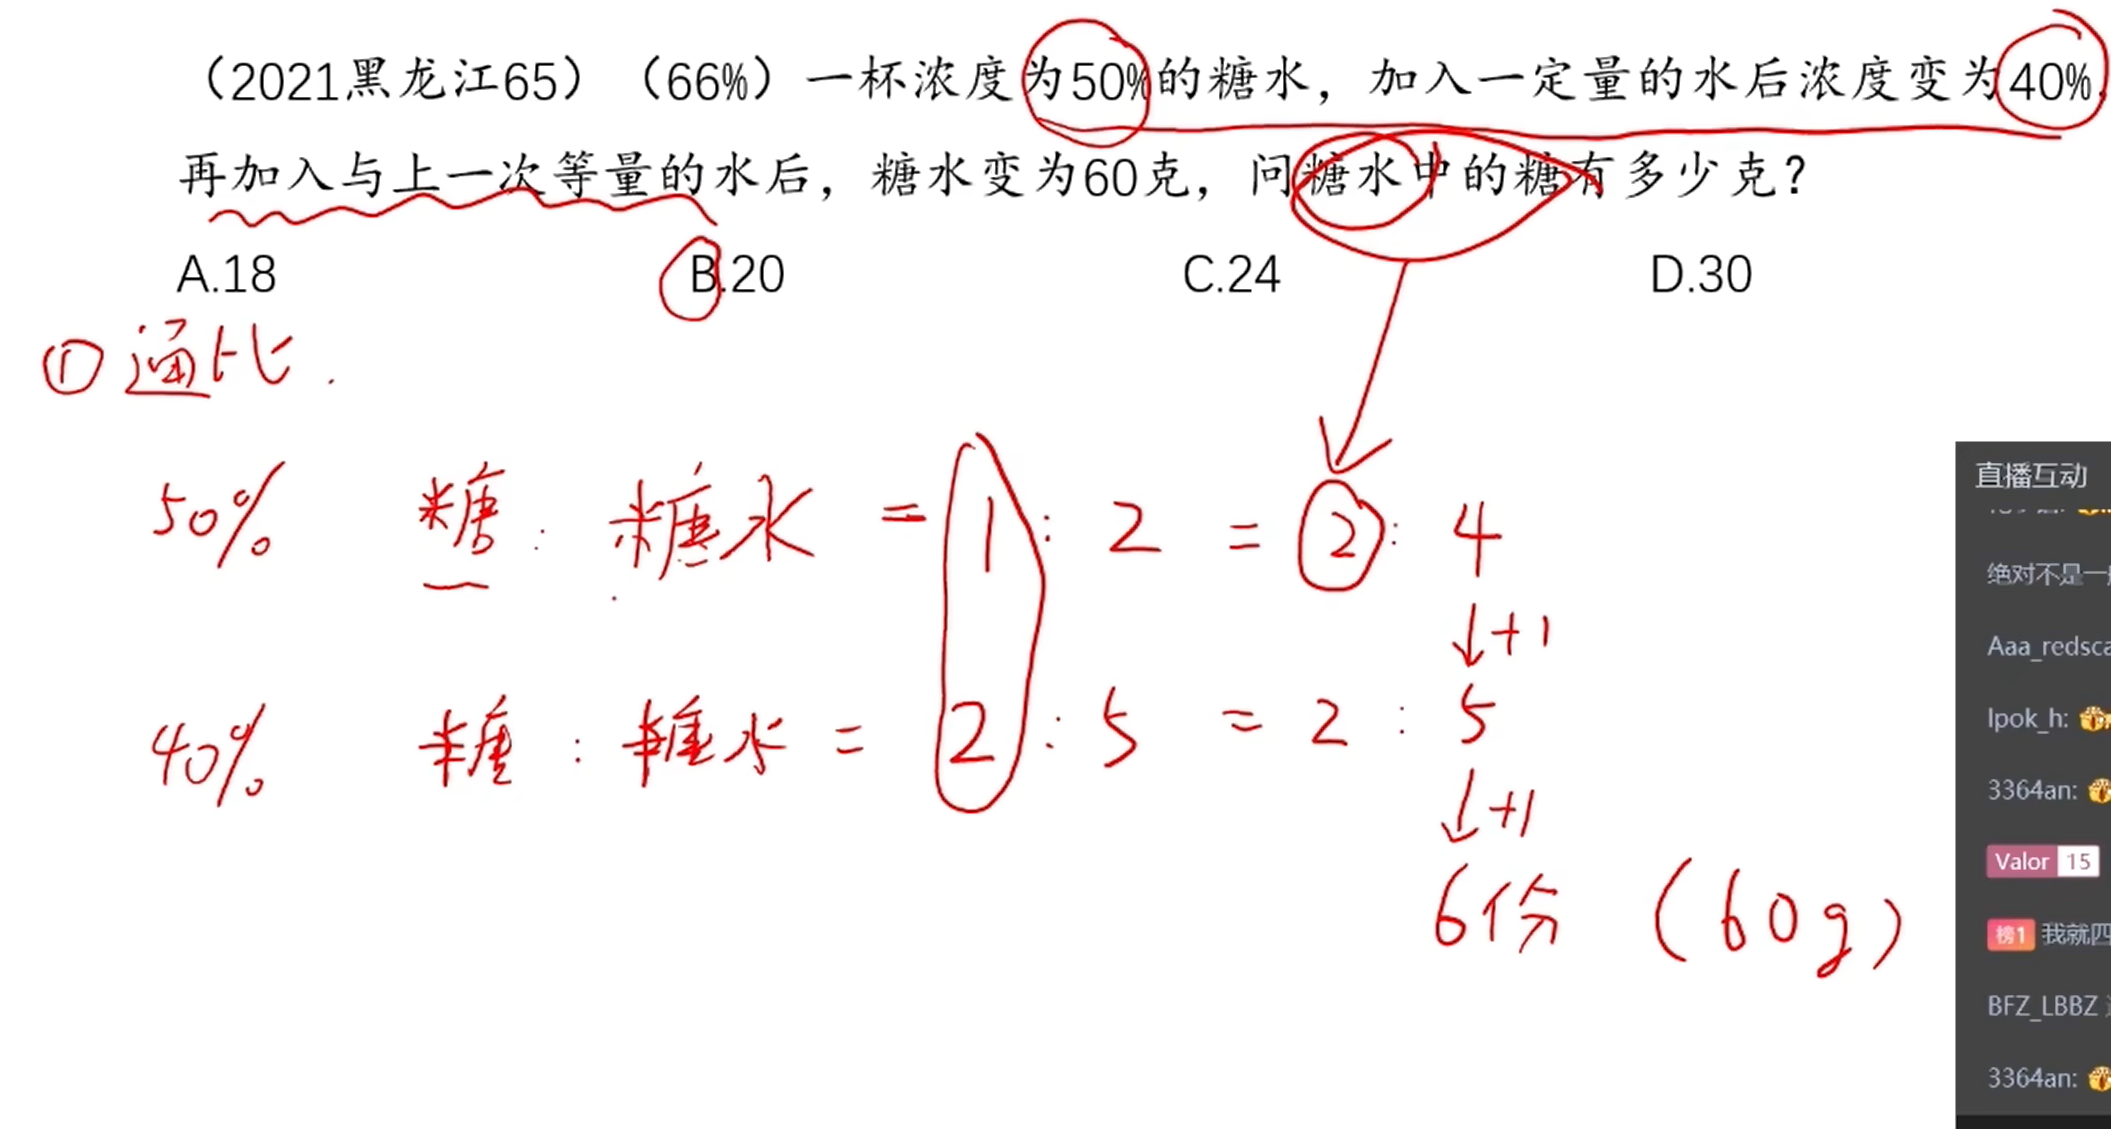 （2021黑龙江65）（66%）一杯浓度为50%的糖水，加入一定量的水后浓度变为40%，
再加入与上一次等量的水后，糖水变为60克，问糖水中的糖有多少克？
A.18 B.20 C.24 D.30
① 通比
50% 糖 : 糖水 = 1 : 2 = 2 : 4
↓+1
40% 糖 : 糖水 = 2 : 5 = 2 : 5
↓+1
6份 (60g)
直播互动
绝对不是一
Aaa_redsca
lpok_h:
3364an:
Valor 15
榜1 我就四
BFZ_LBBZ
3364an: